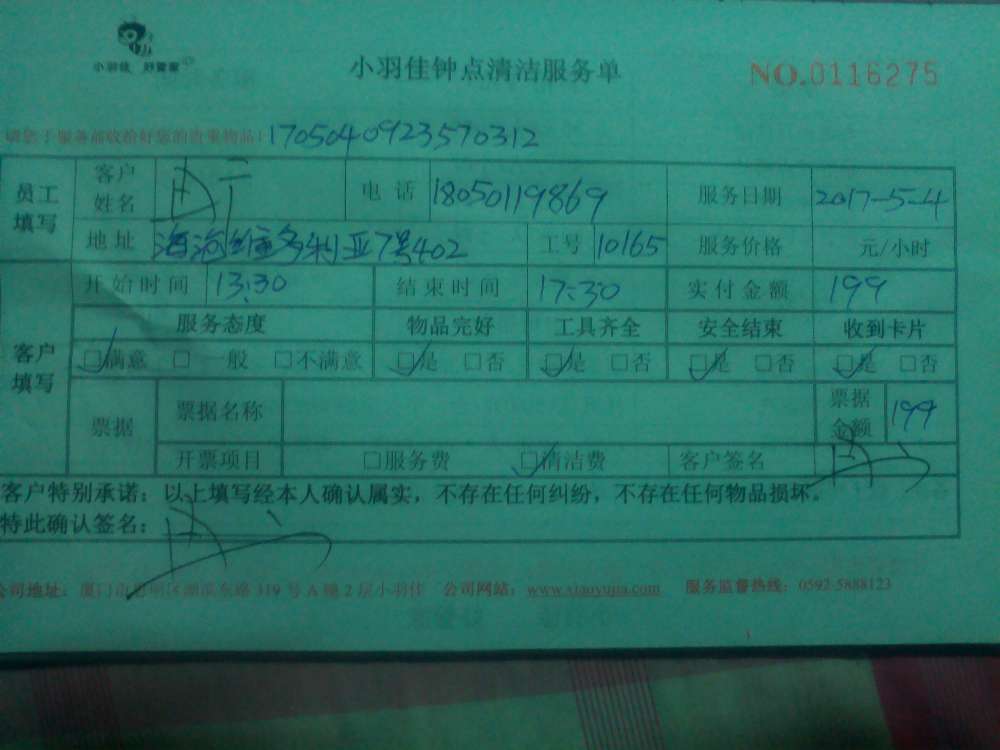 小羽佳 好管家
小羽佳钟点清洁服务单
NO.0116275
请您于服务前收拾好您的贵重物品!
1705040923570312
员工填写 客户姓名 电话 18050119869 服务日期 2017-5-4
地址 海沧维多利亚7号402 工号 10165 服务价格 元/小时
客户填写 开始时间 13:30 结束时间 17:30 实付金额 199
服务态度 物品完好 工具齐全 安全结束 收到卡片
☑满意 □一般 □不满意 ☑是 □否 ☑是 □否 ☑是 □否 ☑是 □否
票据 票据名称 票据金额 199
开票项目 □服务费 ☑清洁费 客户签名
客户特别承诺：以上填写经本人确认属实，不存在任何纠纷，不存在任何物品损坏。
特此确认签名：
公司地址：厦门市思明区湖滨东路319号A幢2层小羽佳 公司网站：www.xiaoyujia.com 服务监督热线：0592 5888123